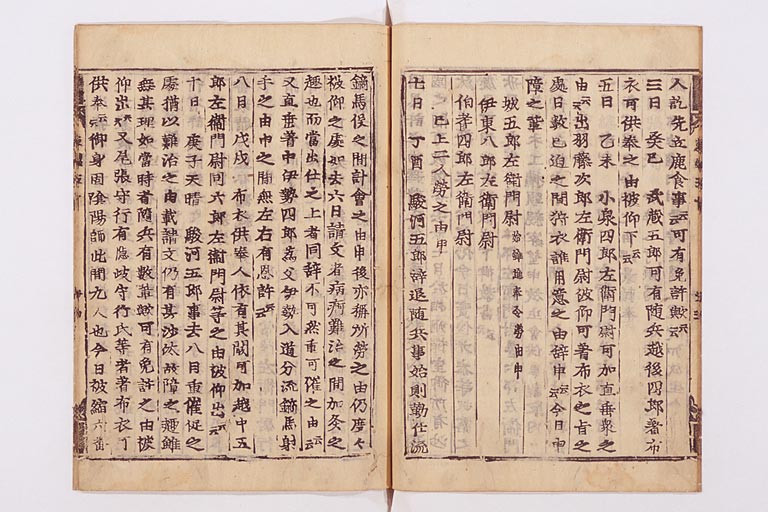 人訖先立鹿食事云々可有免許歟云々
三日 癸巳 武蔵五郎可有随兵越後四郎著布
衣可供奉之由被仰下云々
五日 乙未 小泉四郎左衛門尉可加直垂衆之
由云々出羽藤次郎左衛門尉被仰可著布衣之占之
處日數已迫之間狩衣難用意之由辞申云々今日申
障之輩
城五郎左衛門尉 始辞随兵今勞由申
伊東八郎左衛門尉
伯耆四郎左衛門尉
已上三人勞之由申
七日 丁酉 駿河五郎辞退随兵事始則勤仕流
鏑馬役之間計會之由申後亦称所勞之由仍度々
被仰之處如去六日請文者病痾難治之間加灸之
趣也而當出仕之上者同辞不可然重可催之由云々
又直垂著中伊勢四郎為父伊勢入道分流鏑馬射
手之由申之間無左右有恩許云々
八日 戊戌 布衣供奉人依有其闕可加越中五
郎左衛門尉同六郎左衛門尉等之由被仰出云々
十日 庚子天晴 駿河五郎事去八日重催促之
處猶以難治之由載請文仍有其沙汰故障之趣雖
無其理如當時者随兵有數輩歟可有免許之由被
仰出云々又尾張守行有壱岐守行氏等者著布衣可
供奉云々仰身固陰陽師此間九人也今日被縮六番